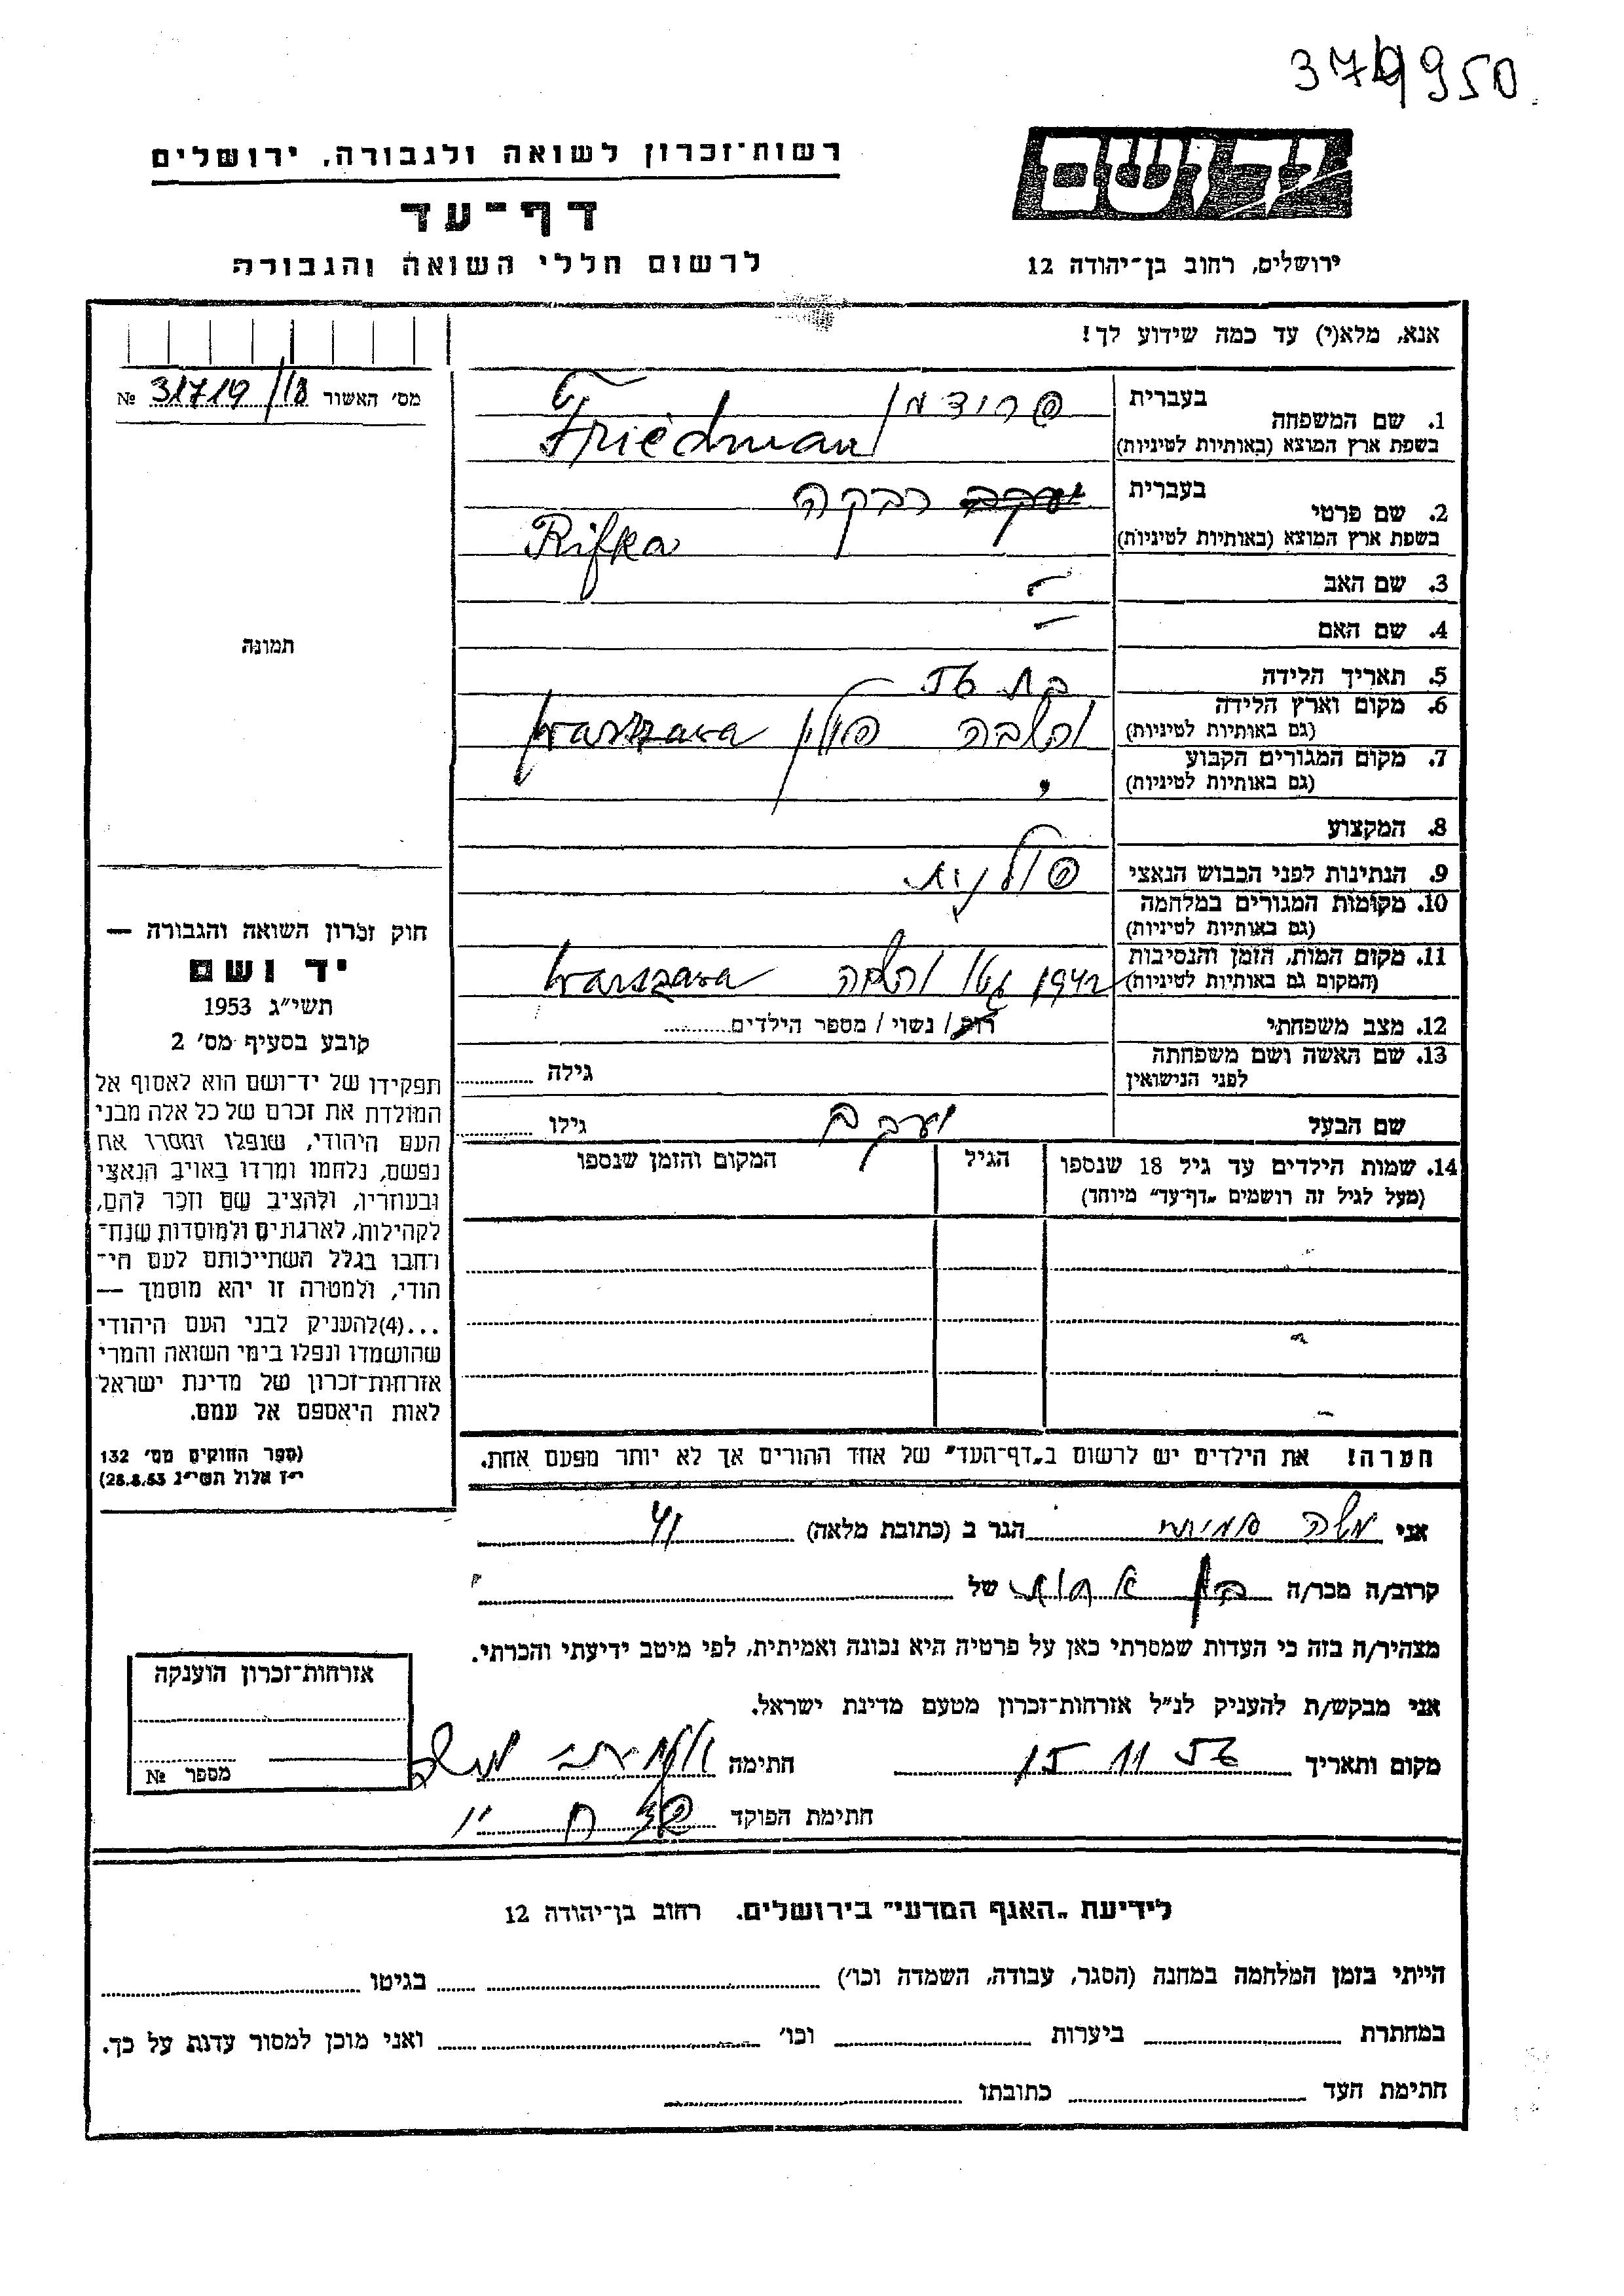 379950
רשות־זכרון לשואה ולגבורה, ירושלים
יד ושם
דף־עד
לרשום חללי השואה והגבורה
ירושלים, רחוב בן־יהודה 12
אנא, מלא(י) עד כמה שידוע לך!
מס׳ האשור 31719/18 №
בעברית פרידמן
1. שם המשפחה
בשפת ארץ המוצא (באותיות לטיניות) Friedman
בעברית יעקב רבקה
2. שם פרטי
בשפת ארץ המוצא (באותיות לטיניות) Rifka
3. שם האב —
4. שם האם —
תמונה
5. תאריך הלידה בת 56
6. מקום וארץ הלידה ורשבה פולין Warszawa
(גם באותיות לטיניות)
7. מקום המגורים הקבוע
(גם באותיות לטיניות) "
8. המקצוע
9. הנתינות לפני הכבוש הנאצי פולנית
10. מקומות המגורים במלחמה
(גם באותיות לטיניות)
11. מקום המות, הזמן והנסיבות
(המקום גם באותיות לטיניות) 1942 גטו ורשבה Warszawa
12. מצב משפחתי רוק / נשוי / מספר הילדים
13. שם האשה ושם משפחתה
לפני הנישואין גילה
שם הבעל יעקב גילו
14. שמות הילדים עד גיל 18 שנספו הגיל המקום והזמן שנספו
(מעל לגיל זה רושמים „דף־עד״ מיוחד)
חוק זכרון השואה והגבורה —
יד ושם
תשי״ג 1953
קובע בסעיף מס׳ 2
תפקידו של יד־ושם הוא לאסוף אל
המולדת את זכרם של כל אלה מבני
העם היהודי, שנפלו ומסרו את
נפשם, נלחמו ומרדו באויב הנאצי
ובעוזריו, ולהציב שם וזכר להם,
לקהילות, לארגונים ולמוסדות שנח־
רבו בגלל השתייכותם לעם הי־
הודי, ולמטרה זו יהא מוסמך —
...(4)להעניק לבני העם היהודי
שהושמדו ונפלו בימי השואה והמרי
אזרחות־זכרון של מדינת ישראל
לאות היאספם אל עמם.
(ספר החוקים מס׳ 132
י״ז אלול תשי״ג 28.8.53)
הערה! את הילדים יש לרשום ב„דף־העד״ של אחד ההורים אך לא יותר מפעם אחת.
אני משה הגר ב (כתובת מלאה)
קרוב/ה מכר/ה בן אחות של
מצהיר/ה בזה כי העדות שמסרתי כאן על פרטיה היא נכונה ואמיתית, לפי מיטב ידיעתי והכרתי.
אני מבקש/ת להעניק לנ״ל אזרחות־זכרון מטעם מדינת ישראל.
מקום ותאריך 15 11 56 חתימה
חתימת הפוקד
אזרחות־זכרון הוענקה
מספר №
לידיעת „האגף המדעי״ בירושלים. רחוב בן־יהודה 12
הייתי בזמן המלחמה במחנה (הסגר, עבודה, השמדה וכו׳) בגיטו
במחתרת ביערות וכו׳ ואני מוכן למסור עדות על כך.
חתימת העד כתובתו